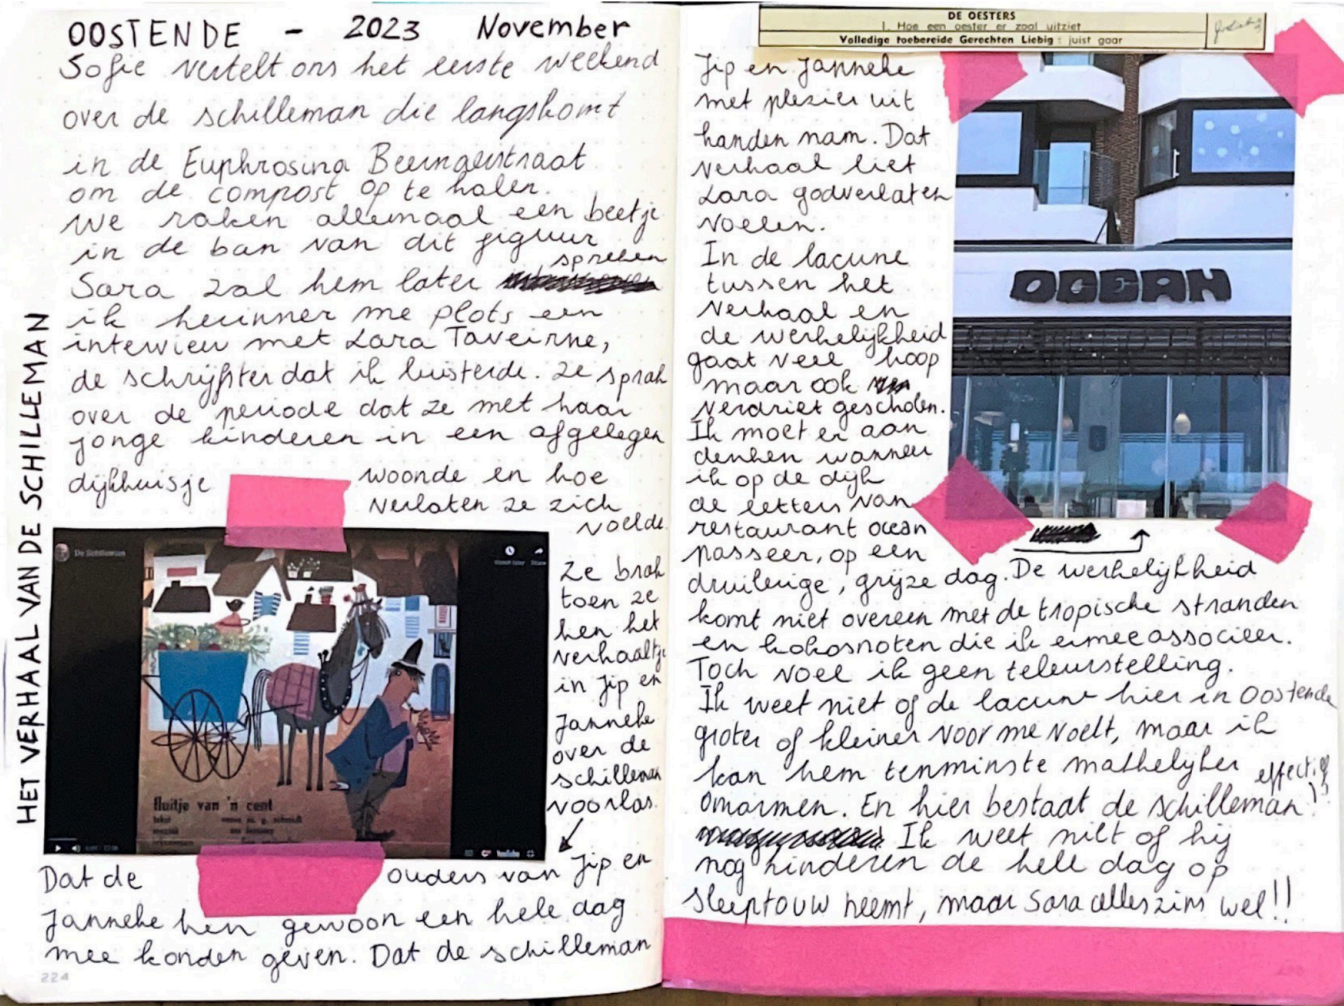 OOSTENDE - 2023 November
Sofie vertelt ons het eerste weekend
over de schilleman die langskomt
in de Euphrosina Beernaertstraat
om de compost op te halen.
We raken allemaal een beetje
in de ban van dit figuur
Sara zal hem later spreken
ik herinner me plots een
interview met Lara Taveirne,
de schrijfster dat ik luisterde. Ze sprak
over de periode dat ze met haar
jonge kinderen in een afgelegen
dijkhuisje woonde en hoe
verlaten ze zich
voelde.
HET VERHAAL VAN DE SCHILLEMAN
De Schilleman
fluitje van 'n cent
YouTube
Ze brak
toen ze
hen het
verhaaltje
in Jip en
Janneke
over de
schilleman
voorlas.
Dat de ouders van Jip en
Janneke hen gewoon een hele dag
mee konden geven. Dat de schilleman
224
DE OESTERS
1. Hoe een oester er zoal uitziet
Volledige toebereide Gerechten Liebig : juist gaar
Jip en Janneke
met plezier uit
handen nam. Dat
verhaal liet
Lara godverlaten
voelen.
In de lacune
tussen het
verhaal en
de werkelijkheid
gaat veel hoop
maar ook
verdriet gescholen.
Ik moet er aan
denken wanneer
ik op de dijk
de letters van
restaurant ocean
passeer, op een
druilerige, grijze dag. De werkelijkheid
komt niet overeen met de tropische stranden
en kokosnoten die ik ermee associeer.
Toch voel ik geen teleurstelling.
Ik weet niet of de lacune hier in Oostende
groter of kleiner voor me voelt, maar ik
kan hem tenminste makkelijker
omarmen. En hier bestaat de schilleman effectief!!
Ik weet niet of hij
nog kinderen de hele dag op
sleeptouw neemt, maar Sara alleszins wel!!
OCEAN